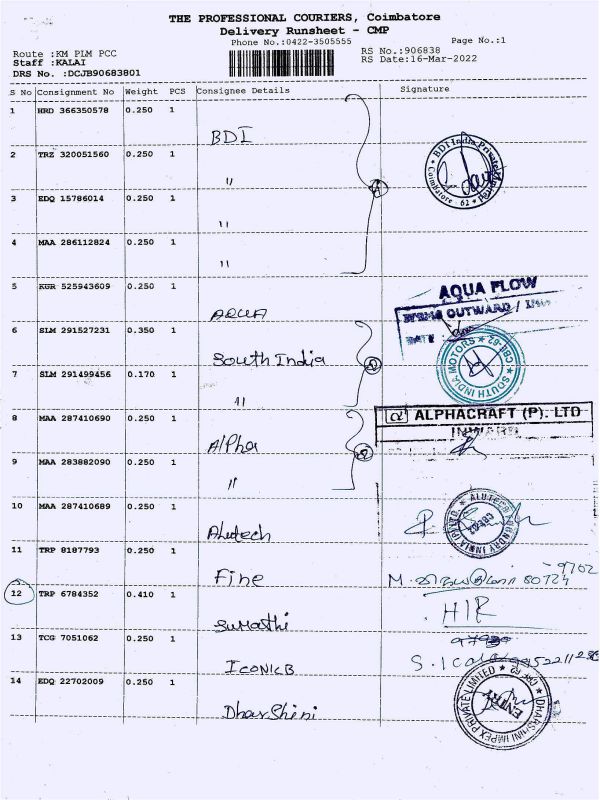 THE PROFESSIONAL COURIERS, Coimbatore
Delivery Runsheet - CMP
Phone No.:0422-3505555
Page No.:1
Route :KM PLM PCC
RS No.:906838
Staff :KALAI
RS Date:16-Mar-2022
DRS No. :DCJB90683801
S No Consignment No Weight PCS Consignee Details Signature
1 HRD 366350578 0.250 1
BDI
BDI India Private Limited
Coimbatore - 62
2 TRZ 320051560 0.250 1
"
3 EDQ 15786014 0.250 1
"
4 MAA 286112824 0.250 1
"
4
5 KUR 525943609 0.250 1
AQUA
AQUA FLOW
OUTWARD
DATE :
6 SLM 291527231 0.350 1
South India
SOUTH INDIA MOTORS CBE-62
7 SLM 291499456 0.170 1
"
8 MAA 287410690 0.250 1
Alpha
α ALPHACRAFT (P). LTD
INWARD
9 MAA 283882090 0.250 1
"
10 MAA 287410689 0.250 1
Alutech
11 TRP 8187793 0.250 1
Fine
M.
80724
-9702
12 TRP 6784352 0.410 1
Sumathi
HIR
13 TCG 7051062 0.250 1
ICONICB
14 EDQ 22702009 0.250 1
Dharshini
DHARSHINI IMPEX PRIVATE LIMITED
ENTRY